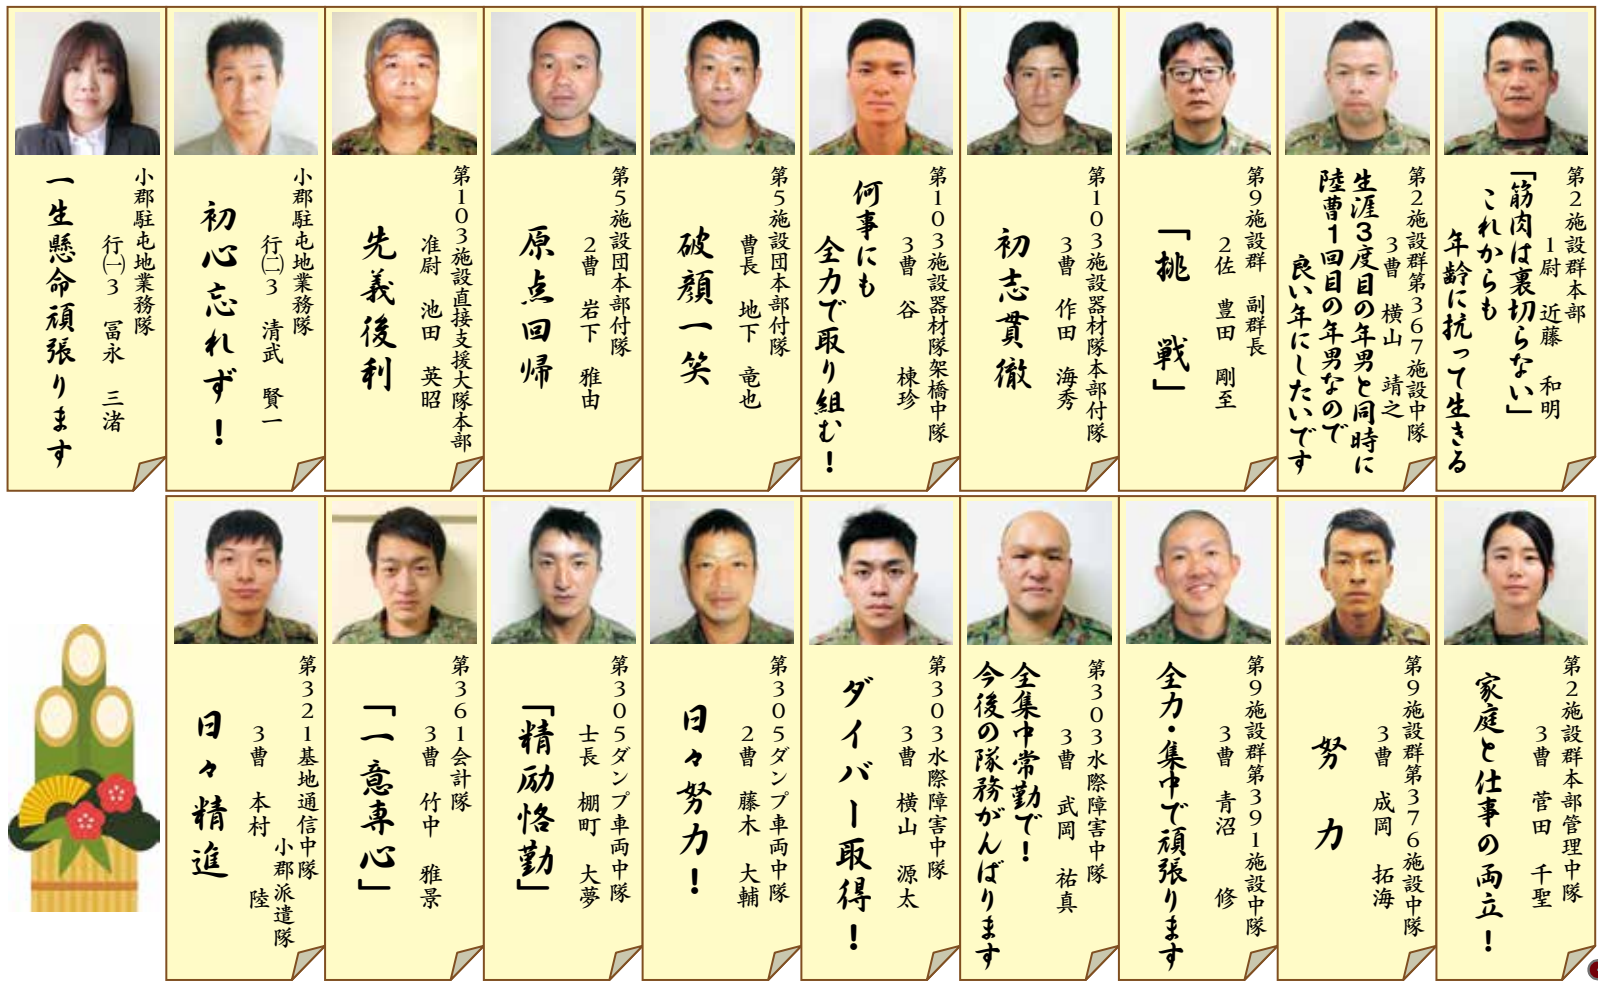 第2施設群本部
1尉 近藤 和明
「筋肉は裏切らない」
これからも
年齢に抗って生きる
第2施設群第367施設中隊
3曹 横山 靖之
生涯3度目の年男と同時に
陸曹1回目の年男なので
良い年にしたいです
第9施設群 副群長
2佐 豊田 剛至
「挑 戦」
第103施設器材隊本部付隊
3曹 作田 海秀
初志貫徹
第103施設器材隊架橋中隊
3曹 谷 棟珍
何事にも
全力で取り組む!
第5施設団本部付隊
曹長 地下 竜也
破顔一笑
第5施設団本部付隊
2曹 岩下 雅由
原点回帰
第103施設直接支援大隊本部
准尉 池田 英昭
先義後利
小郡駐屯地業務隊
行㈡3 清武 賢一
初心忘れず!
小郡駐屯地業務隊
行㈠3 冨永 三渚
一生懸命頑張ります
第2施設群本部管理中隊
3曹 菅田 千聖
家庭と仕事の両立!
第9施設群第376施設中隊
3曹 成岡 拓海
努 力
第9施設群第391施設中隊
3曹 青沼 修
全力・集中で頑張ります
第303水際障害中隊
3曹 武岡 祐真
全集中常勤で!
今後の隊務がんばります
第303水際障害中隊
3曹 横山 源太
ダイバー取得!
第305ダンプ車両中隊
2曹 藤木 大輔
日々努力!
第305ダンプ車両中隊
士長 棚町 大夢
「精励恪勤」
第361会計隊
3曹 竹中 雅景
「一意専心」
第321基地通信中隊
小郡派遣隊
3曹 本村 陸
日々精進